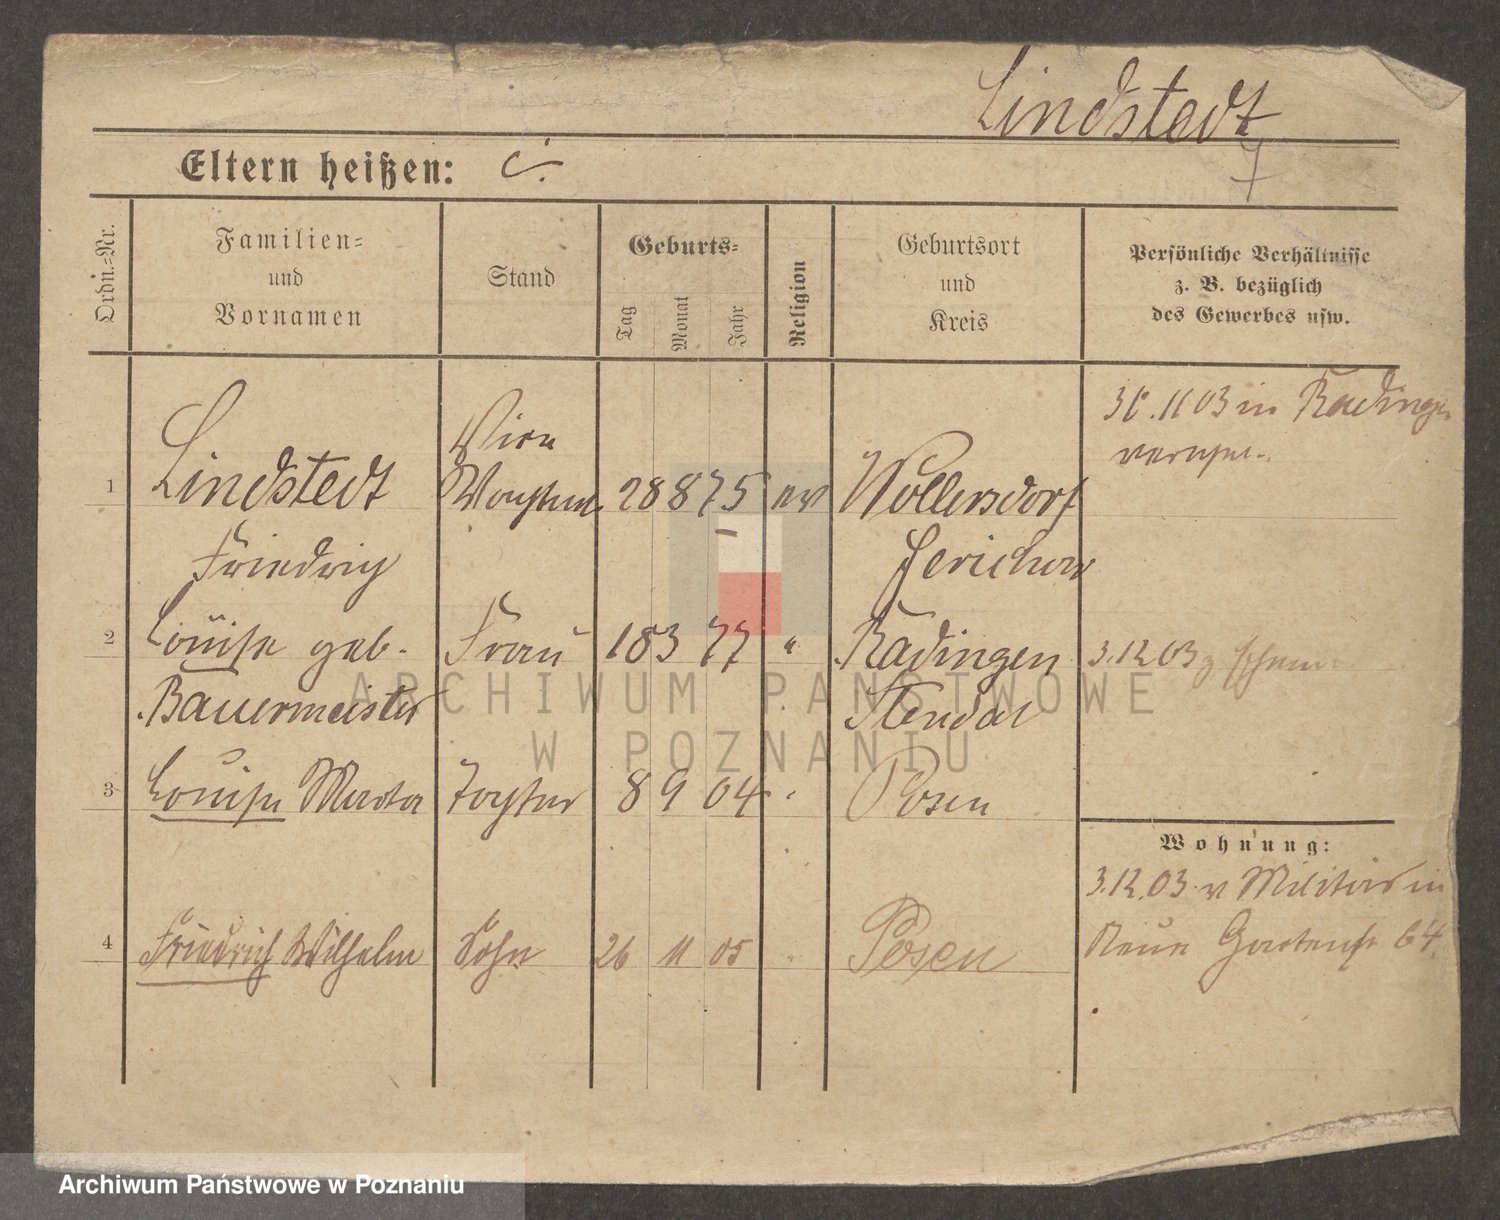 Lindstedt
7
Eltern heißen:
Ordn.-Nr.
Familien-
und
Vornamen
Stand
Geburts-
Tag
Monat
Jahr
Religion
Geburtsort
und
Kreis
Persönliche Verhältnisse
z. B. bezüglich
des Gewerbes usw.
1
Lindstedt
28 8 75
ev
Wollersdorf
.11 03 in Radingen
Friedrich
Jerichow
2
Louise geb.
Frau
18 3 77
"
Radingen
3.12 03
Bauermeister
Stendal
3
Louise Marta
Tochter
8 9 04
"
Posen
Wohnung:
3.12.03 v Militär in
Neue Gartenstr 64.
4
Friedrich Wilhelm
Sohn
26 11 05
"
Posen
ARCHIWUM PAŃSTWOWE
W POZNANIU
Archiwum Państwowe w Poznaniu